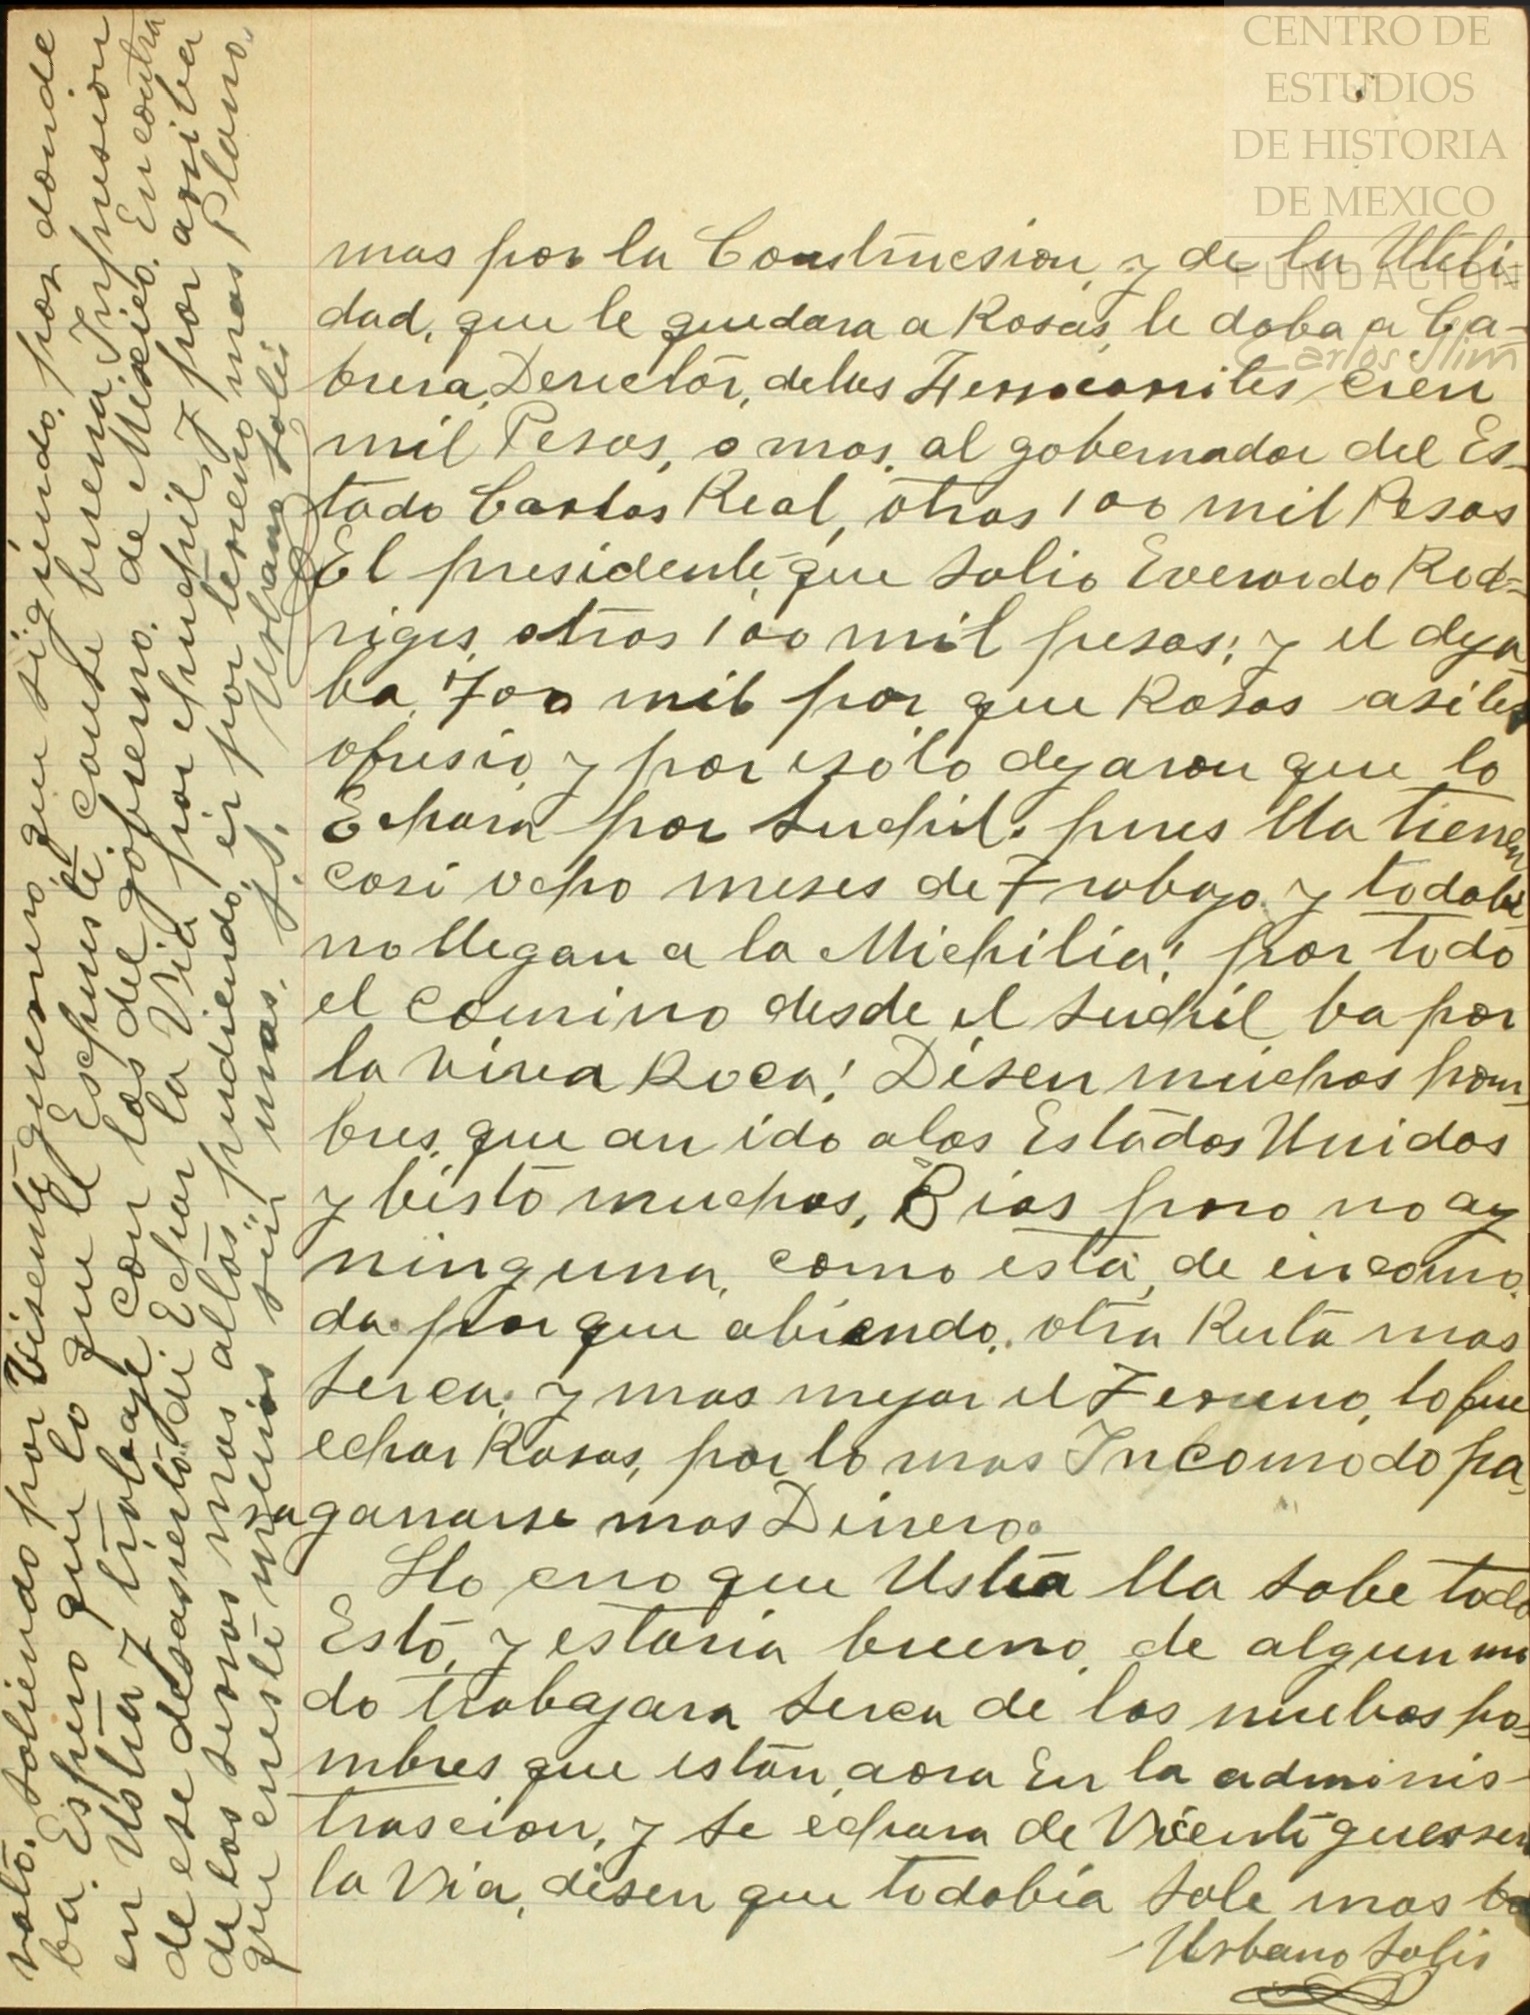 CENTRO DE
ESTUDIOS
DE HISTORIA
DE MEXICO
FUNDACION
Carlos Slim
mas por la Construcsion, y de la Utili-
dad, que le quedara a Rosas, le daba a Ca-
brera, Derector, delos Ferrocarriles cien
mil Pesos, o mas, al gobernador del Es-
tado Carlos Real, otros 100 mil Pesos
El presidente, que salio Everardo Rod-
rigis, otros 100 mil pesos; y el deja
ba, 700 mil por que Rosas asiles
ofresio, y por esolo dejaron que lo
Echara por Suchil. pues lla tienen
casi ocho meses de Trabajo y todabi
no llegan a la Michilia! por todo
el camino desde el Suchil ba por
la viva Roca! Disen muchos hom-
bres, que an ido alos Estados Unidos
y bisto muchas, Bias pero no ay
ninguna, como esta, de incomo-
da. por que abiendo, otra Ruta mas
serca, y mas mejor el Tereno, lo fue
echar Rosas, por lo mas Incomodo pa-
ra ganarse mas Dinero.
Llo creo que Usted lla sabe todo
Esto, y estaria bueno, de algun mo
do trabajara serca de los nuebos ho-
mbres que están aora En la adminis-
trascion, y se echara de Vicente guerrero
la Via, disen que todabia sale mas ba
Urbano Solis
rato, saliendo por Visente guerrero, que siguiendo, por donde
ba. Espero que lo que le Escpuse, cause buena Inpresion
en Usted y trabaje con los del gobierno. de Mexico. En contra
de ese desasierto. di Echar la Via por epuchil, y por ariba
de los seros mas altos" pudiendo, ir por tereno mas Plano.
que eneste menos sin mas. S.S. Urbano Solis